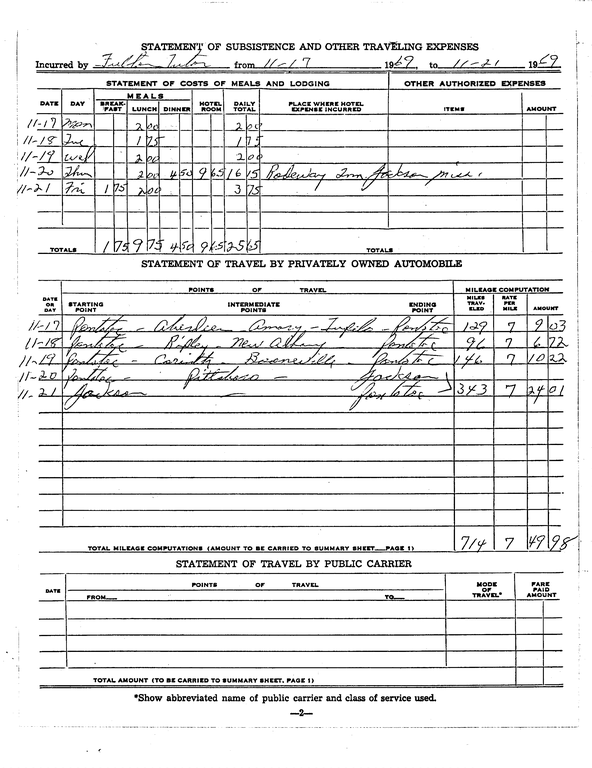 STATEMENT OF SUBSISTENCE AND OTHER TRAVELING EXPENSES
Incurred by Fulton Tutor from 11-17 1969, to 11-21 1969
STATEMENT OF COSTS OF MEALS AND LODGING OTHER AUTHORIZED EXPENSES
MEALS
DATE DAY BREAK-FAST LUNCH DINNER HOTEL ROOM DAILY TOTAL PLACE WHERE HOTEL EXPENSE INCURRED ITEMS AMOUNT
11-17 Mon 2 00 2 00
11-18 Tue 1 75 1 75
11-19 Wed 2 00 2 00
11-20 Thu 2 00 4 50 9 65 16 15 Rodeway Inn Jackson Miss.
11-21 Fri 1 75 2 00 3 75
TOTALS 1 75 9 75 4 50 9 65 25 65 TOTALS
STATEMENT OF TRAVEL BY PRIVATELY OWNED AUTOMOBILE
POINTS OF TRAVEL MILEAGE COMPUTATION
DATE OR DAY STARTING POINT INTERMEDIATE POINTS ENDING POINT MILES TRAV-ELED RATE PER MILE AMOUNT
11-17 Pontotoc - Aberdeen Amory - Tupelo - Pontotoc 129 7 9 03
11-18 Pontotoc - Ripley - New Albany Pontotoc 96 7 6 72
11-19 Pontotoc - Corinth - Booneville Pontotoc 146 7 10 22
11-20 Pontotoc - Pittsboro - Jackson
11-21 Jackson - Pontotoc 343 7 24 01
TOTAL MILEAGE COMPUTATIONS (AMOUNT TO BE CARRIED TO SUMMARY SHEET PAGE 1) 714 7 49 98
STATEMENT OF TRAVEL BY PUBLIC CARRIER
DATE POINTS OF TRAVEL MODE OF TRAVEL* FARE PAID AMOUNT
FROM TO
TOTAL AMOUNT (TO BE CARRIED TO SUMMARY SHEET, PAGE 1)
*Show abbreviated name of public carrier and class of service used.
—2—